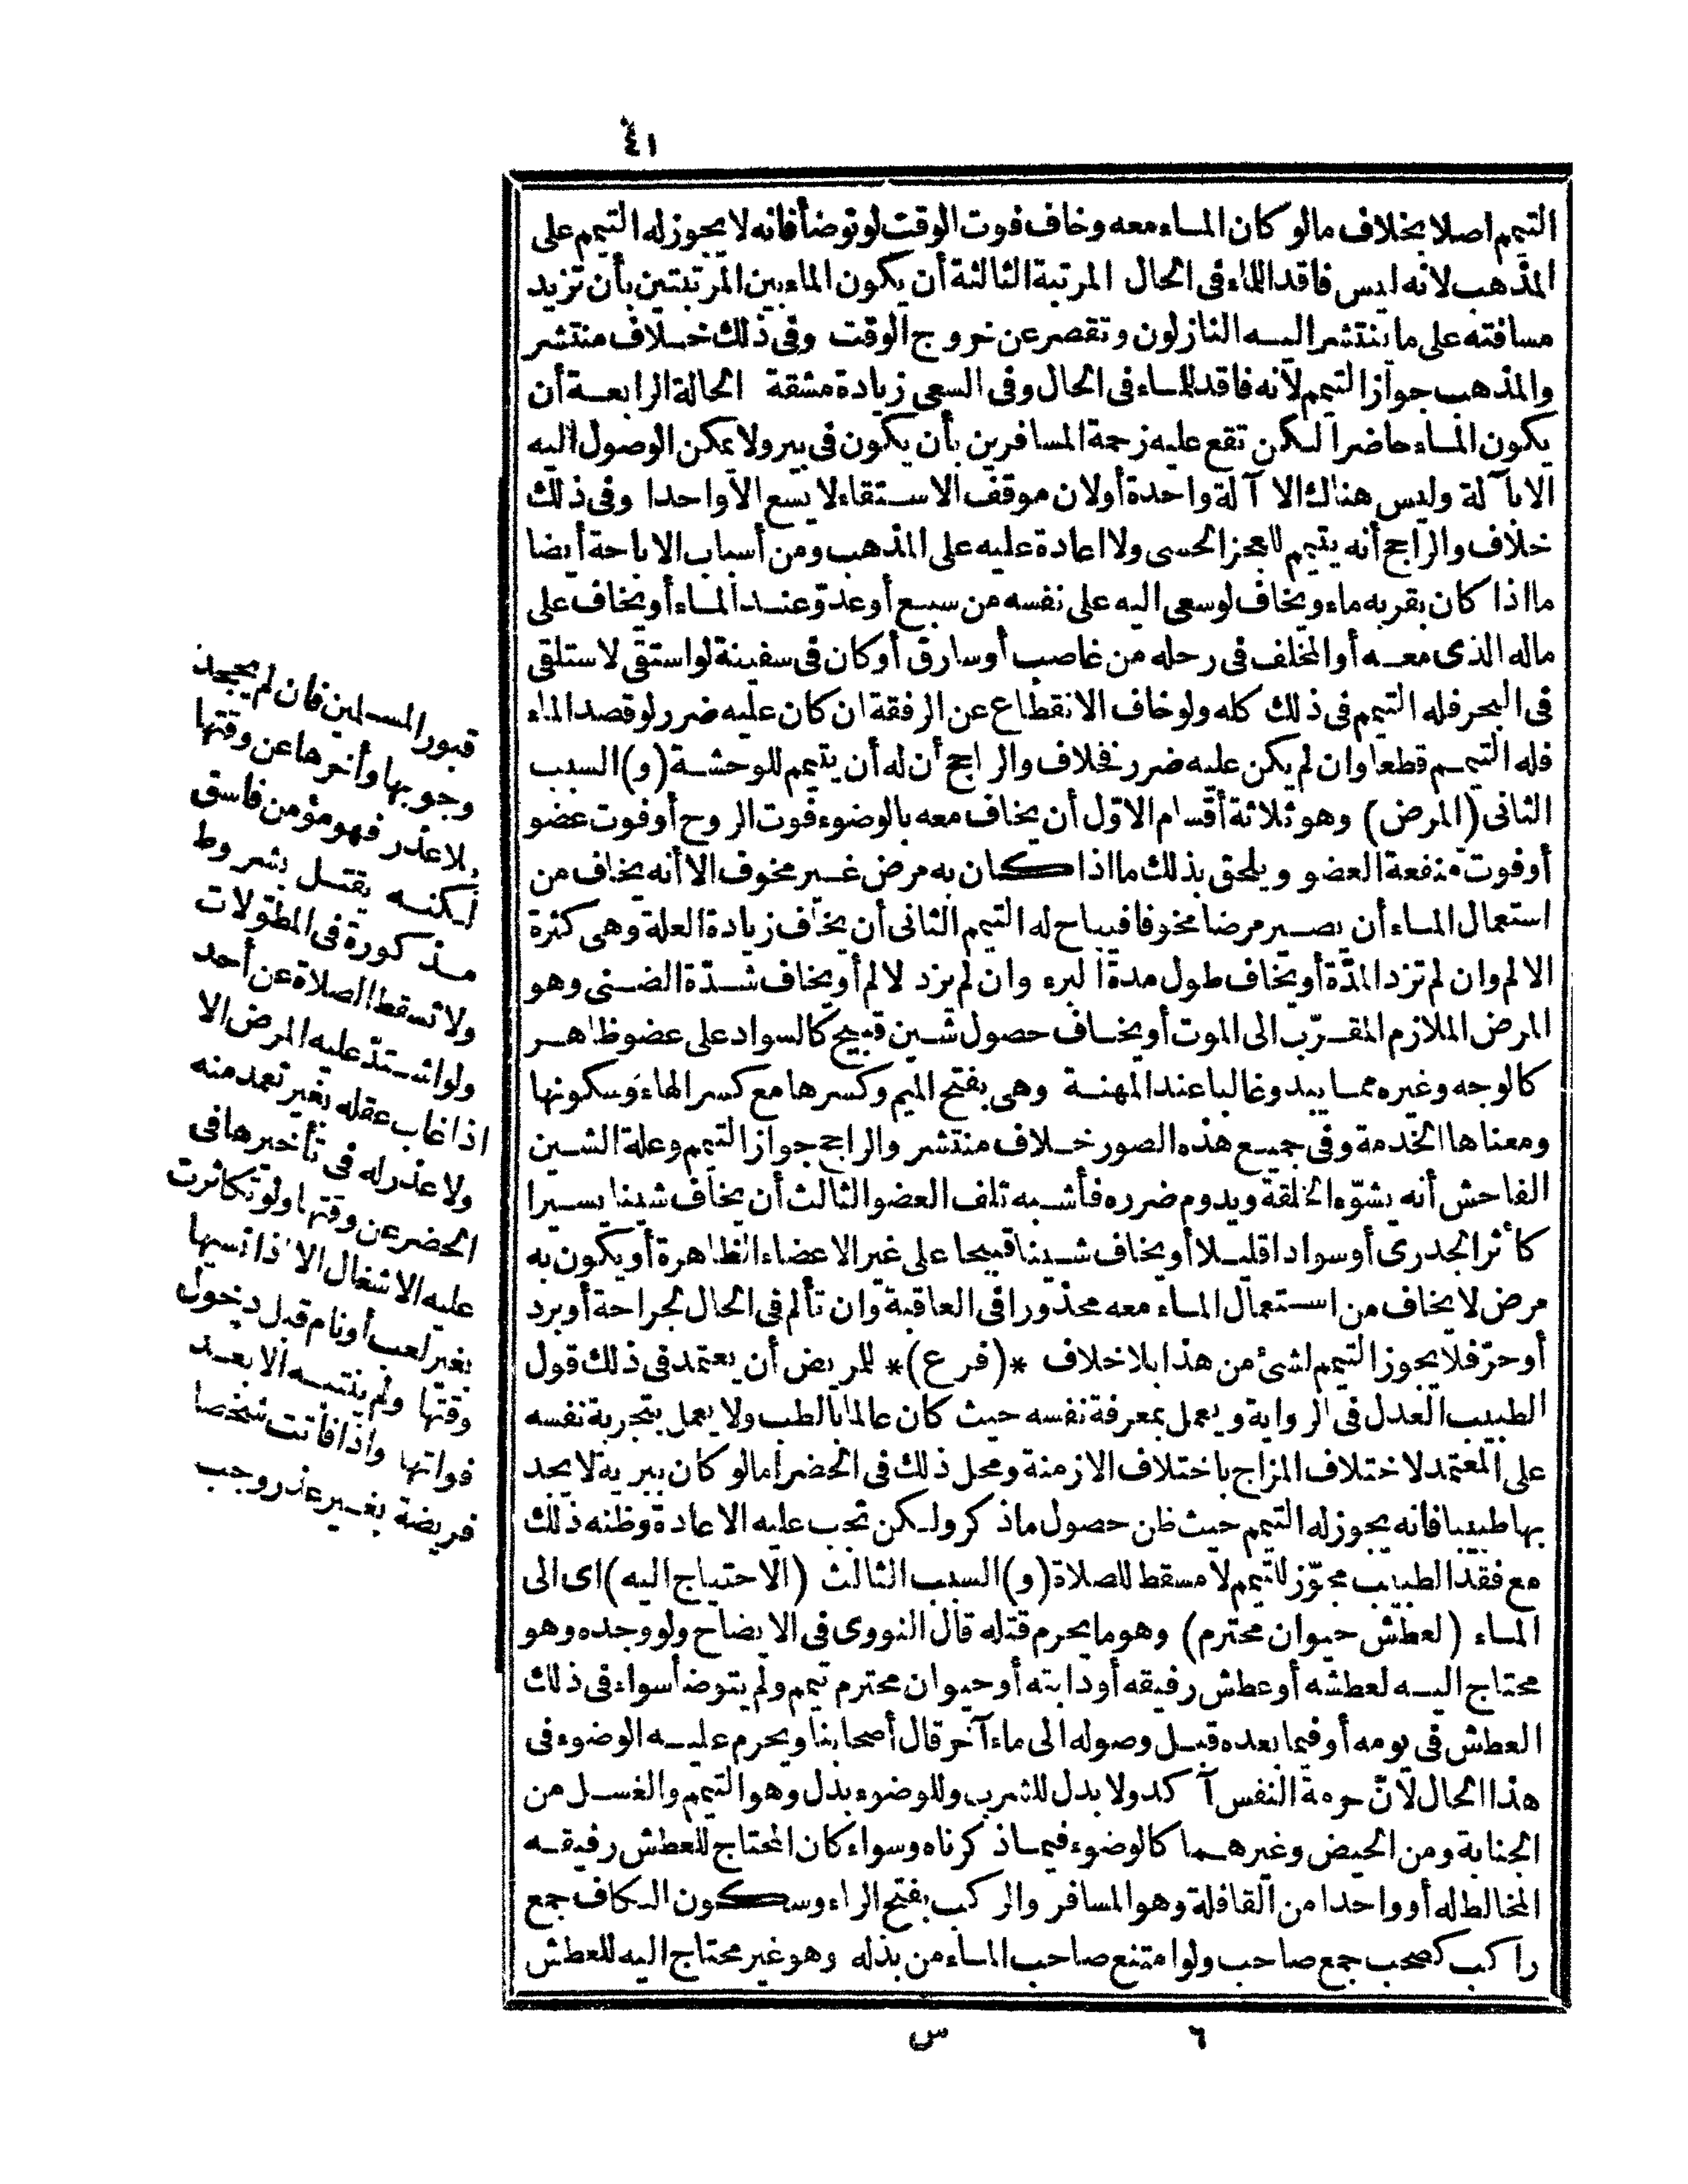 ٤١
التيمم اصلا بخلاف مالو كان الماء معه وخاف فوت الوقت لو توضأ فانه لا يجوز له التيمم على
المذهب لانه ليس فاقد الماء فى الحال المرتبة الثالثة أن يكون الماء بين المرتبتين بأن تزيد
مسافته على ما ينتشر اليه النازلون وتقصر عن خروج الوقت وفى ذلك خلاف منتشر
والمذهب جواز التيمم لانه فاقد للماء فى الحال وفى السعى زيادة مشقة الحالة الرابعة أن
يكون الماء حاضرا لكن تقع عليه زحمة المسافرين بأن يكون فى بير ولا يمكن الوصول اليه
الا بآلة وليس هناك الا آلة واحدة أو لان موقف الاستقاء لا يسع الا واحدا وفى ذلك
خلاف والراجح أنه يتيمم للعجز الحسى ولا اعادة عليه على المذهب ومن أسباب الاباحة أيضا
ما اذا كان بقربه ماء ويخاف لو سعى اليه على نفسه من سبع أو عدوّ عند الماء أو يخاف على
ماله الذى معه أو المخلف فى رحله من غاصب أو سارق أو كان فى سفينة لو استقى لاستلقى
فى البحر فله التيمم فى ذلك كله ولو خاف الانقطاع عن الرفقة ان كان عليه ضرر لو قصد الماء
فله التيمم قطعا وان لم يكن عليه ضرر فخلاف والراجح أن له أن يتيمم للوحشة (و) السبب
الثانى (المرض) وهو ثلاثة أقسام الاوّل أن يخاف معه بالوضوء فوت الروح أو فوت عضو
أو فوت منفعة العضو ويلحق بذلك ما اذا كان به مرض غير مخوف الا أنه يخاف من
استعمال الماء أن يصير مرضا مخوفا فيباح له التيمم الثانى أن يخاف زيادة العلة وهى كثرة
الالم وان لم تزد المدّة أو يخاف طول مدة البرء وان لم يزد لالم أو يخاف شدّة الضنى وهو
المرض الملازم المقرّب الى الموت أو يخاف حصول شين قبيح كالسواد على عضو ظاهر
كالوجه وغيره مما يبدو غالبا عند المهنة وهى بفتح الميم وكسرها مع كسر الهاء وسكونها
ومعناها الخدمة وفى جميع هذه الصور خلاف منتشر والراجح جواز التيمم وعلة الشين
الفاحش أنه يشوّه الخلقة ويدوم ضرره فأشبه تلف العضو الثالث أن يخاف شينا يسيرا
كأثر الجدرى أو سوادا قليلا أو يخاف شينا قبيحا على غير الاعضاء الظاهرة أو يكون به
مرض لا يخاف من استعمال الماء معه محذورا فى العاقبة وان تألم فى الحال لجراحة أو برد
أو حرّ فلا يجوز التيمم لشئ من هذا بلا خلاف *(فرع)* للمريض أن يعتمد فى ذلك قول
الطبيب العدل فى الرواية ويعمل بمعرفة نفسه حيث كان عالما بالطب ولا يعمل بتجربة نفسه
على المعتمد لاختلاف المزاج باختلاف الازمنة ومحل ذلك فى الحضر أما لو كان ببرية لا يجد
بها طبيبا فانه يجوز له التيمم حيث ظن حصول ماذكر ولكن تجب عليه الاعادة وظنه ذلك
مع فقد الطبيب مجوّز للتيمم لا مسقط للصلاة (و) السبب الثالث (الاحتياج اليه) اى الى
الماء (لعطش حيوان محترم) وهو ما يحرم قتله قال النووى فى الايضاح ولو وجده وهو
محتاج اليه لعطشه أو عطش رفيقه أو دابته أو حيوان محترم تيمم ولم يتوضأ سواء فى ذلك
العطش فى يومه أو فيما بعده قبل وصوله الى ماء آخر قال أصحابنا ويحرم عليه الوضوء فى
هذا الحال لانّ حرمة النفس آكد ولا بدل للشرب وللوضوء بدل وهو التيمم والغسل من
الجنابة ومن الحيض وغيرهما كالوضوء فيما ذكرناه وسواء كان المحتاج للعطش رفيقه
المخالط له أو واحدا من القافلة وهو المسافر والركب بفتح الراء وسكون الكاف جمع
راكب كصحب جمع صاحب ولو امتنع صاحب الماء من بذله وهو غير محتاج اليه للعطش
قبور المسلمين فان لم يجحد
وجوبها وأخرها عن وقتها
بلا عذر فهو مؤمن فاسق
لكنه يقتل بشروط
مذكورة فى المطوّلات
ولا تسقط الصلاة عن أحد
ولو اشتدّ عليه المرض الا
اذا غاب عقله بغير تعمد منه
ولا عذر له فى تأخيرها فى
الحضر عن وقتها ولو تكاثرت
عليه الاشغال الا اذا نسيها
بغير لعب أو نام قبل دخول
وقتها ولم ينتبه الا بعد
فواتها واذا فاتت شخصا
فريضة بغير عذر وجب
٦ س